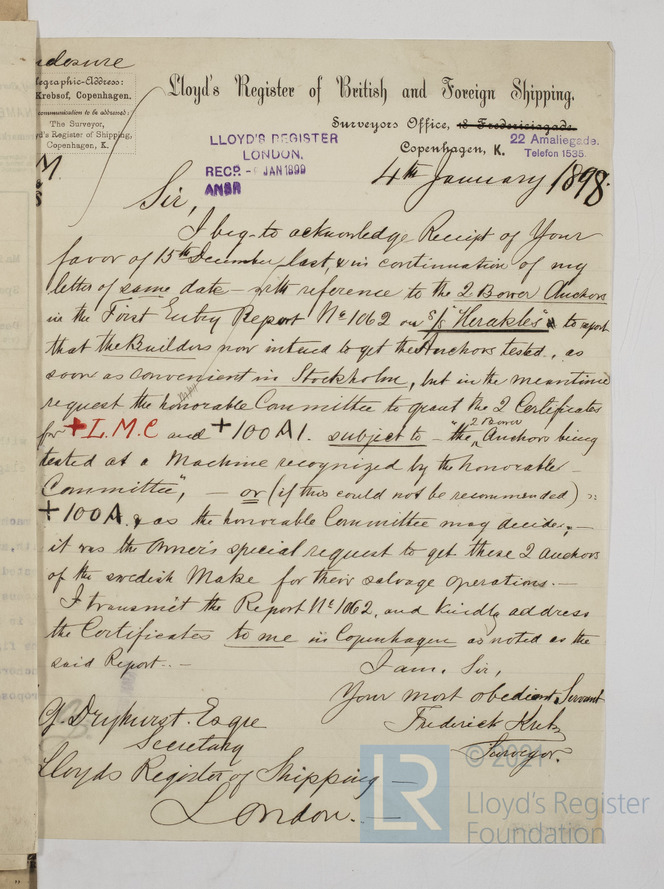 closure
legraphic-Address:
Krebsof, Copenhagen.
communication to be addressed:
The Surveyor,
yd's Register of Shipping,
Copenhagen, K.
Lloyd's Register of British and Foreign Shipping.
Surveyors Office, 18 Fredericiagade.
22 Amaliegade.
Telefon 1535.
Copenhagen, K.
LLOYD'S REGISTER
LONDON.
RECD. JAN 1899
ANSD
4th January 1898.
M.
Sir,
I beg to acknowledge Receipt of Your
favor of 15th December last, & in continuation of my
letter of same date – with reference to the 2 Bower Anchors
in the First Entry Report No 1062 on S/S "Herakles" to report
that the Builders now intend to get the Anchors tested, as
soon as convenient in Stockholm, but in the meantime
request the honorable Committee to grant the 2 Certificates
for +L.M.C and +100A1. subject to – "the 2 Bower Anchors being
tested at a Machine recognized by the honorable –
Committee", – or (if this could not be recommended) :
+100A. as the honorable Committee may decide; –
it was the Owner's special request to get these 2 anchors
of the swedish Make for their salvage operations. –
I transmit the Report No 1062, and kindly address
the Certificates to me in Copenhagen as noted on the
said Report. –
I am, Sir,
Your most obedient Servant
Frederick Krebs
Surveyor.
G Dryhurst. Esqre
Secretary
Lloyds Register of Shipping –
London. –
© 2021
LR
Lloyd's Register
Foundation